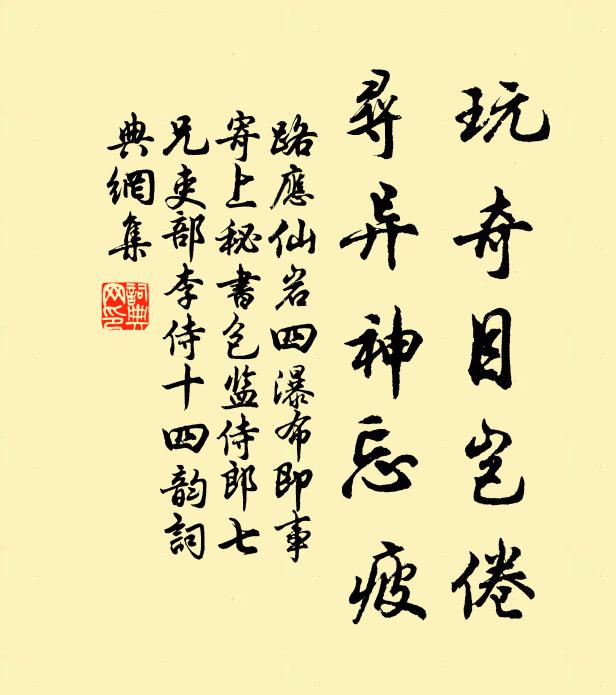 玩奇目岂倦
尋异神忘疲
路應仙岩四瀑布即事
寄上秘書包监侍郎七
兄吏部李侍十四韵詞
典網集
詞典
网印